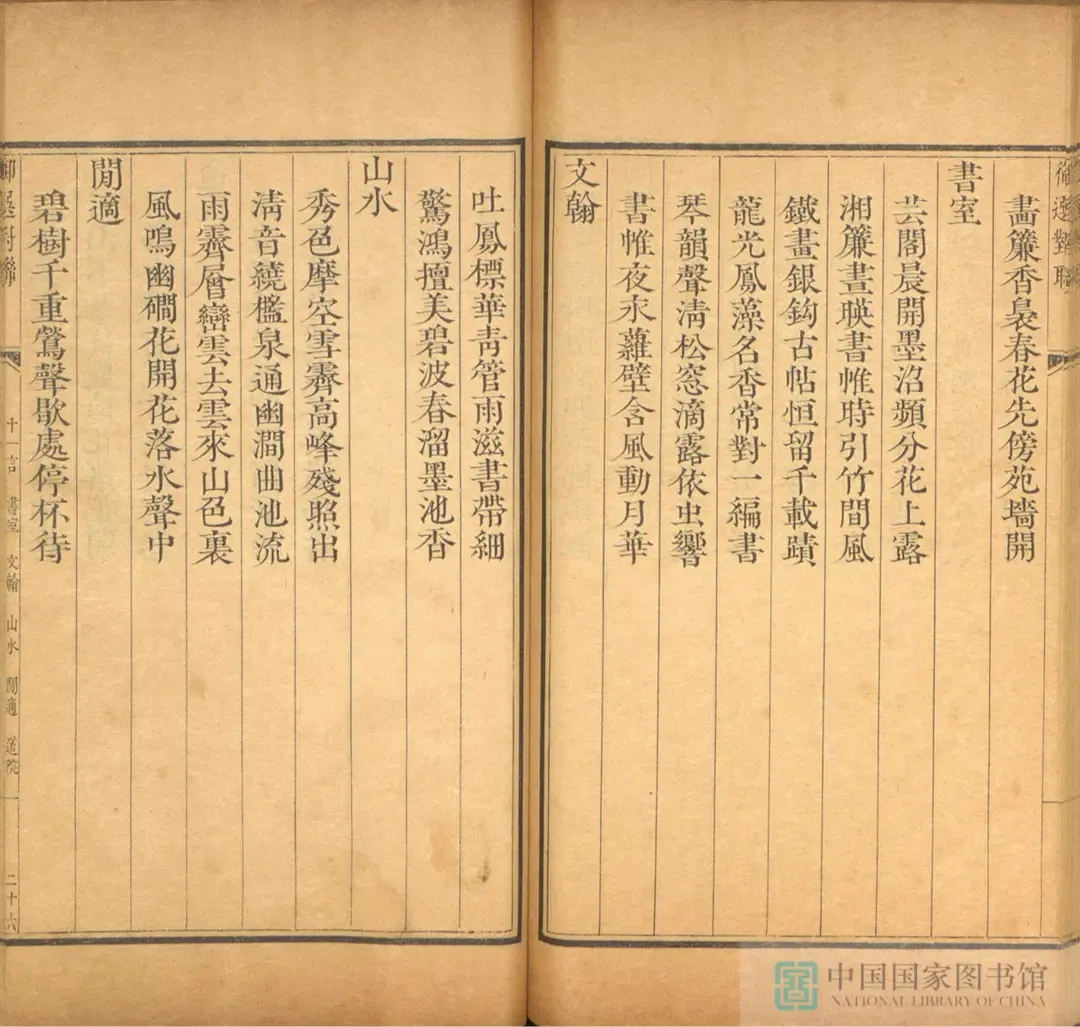 畵簾香裊春花先傍苑墻開
書室
芸閣晨開墨沼頻分花上露
湘簾晝暎書帷時引竹間風
鐵畫銀鈎古帖恒留千載蹟
龍光鳳藻名香常對一編書
琴韻聲淸松窓滴露依虫響
書帷夜永蘿壁含風動月華
文翰
吐鳳標華靑管雨滋書帶細
驚鴻擅美碧波春溜墨池香
山水
秀色摩空雪霽高峰殘照出
淸音繞檻泉通幽澗曲池流
雨霽層巒雲去雲來山色裏
風鳴幽磵花開花落水聲中
閒適
碧樹千重鶯聲歇處停杯待
對聯
十一言 書室 文翰 山水 閒適 道院
二十六
中国国家图书馆
NATIONAL LIBRARY OF CHINA